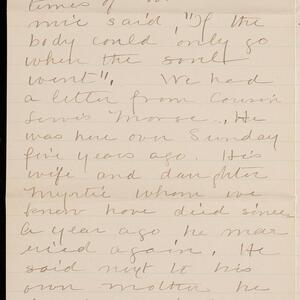 times of
mic said, "If the
body could only go
when the soul
went". We had
a letter from Cousin
Lewis Morse. He
was here over Sunday
five years ago. His
wife and daughter
Myrtie whom we
knew have died since
A year ago he mar
ried again. He
said next to his
own mother he